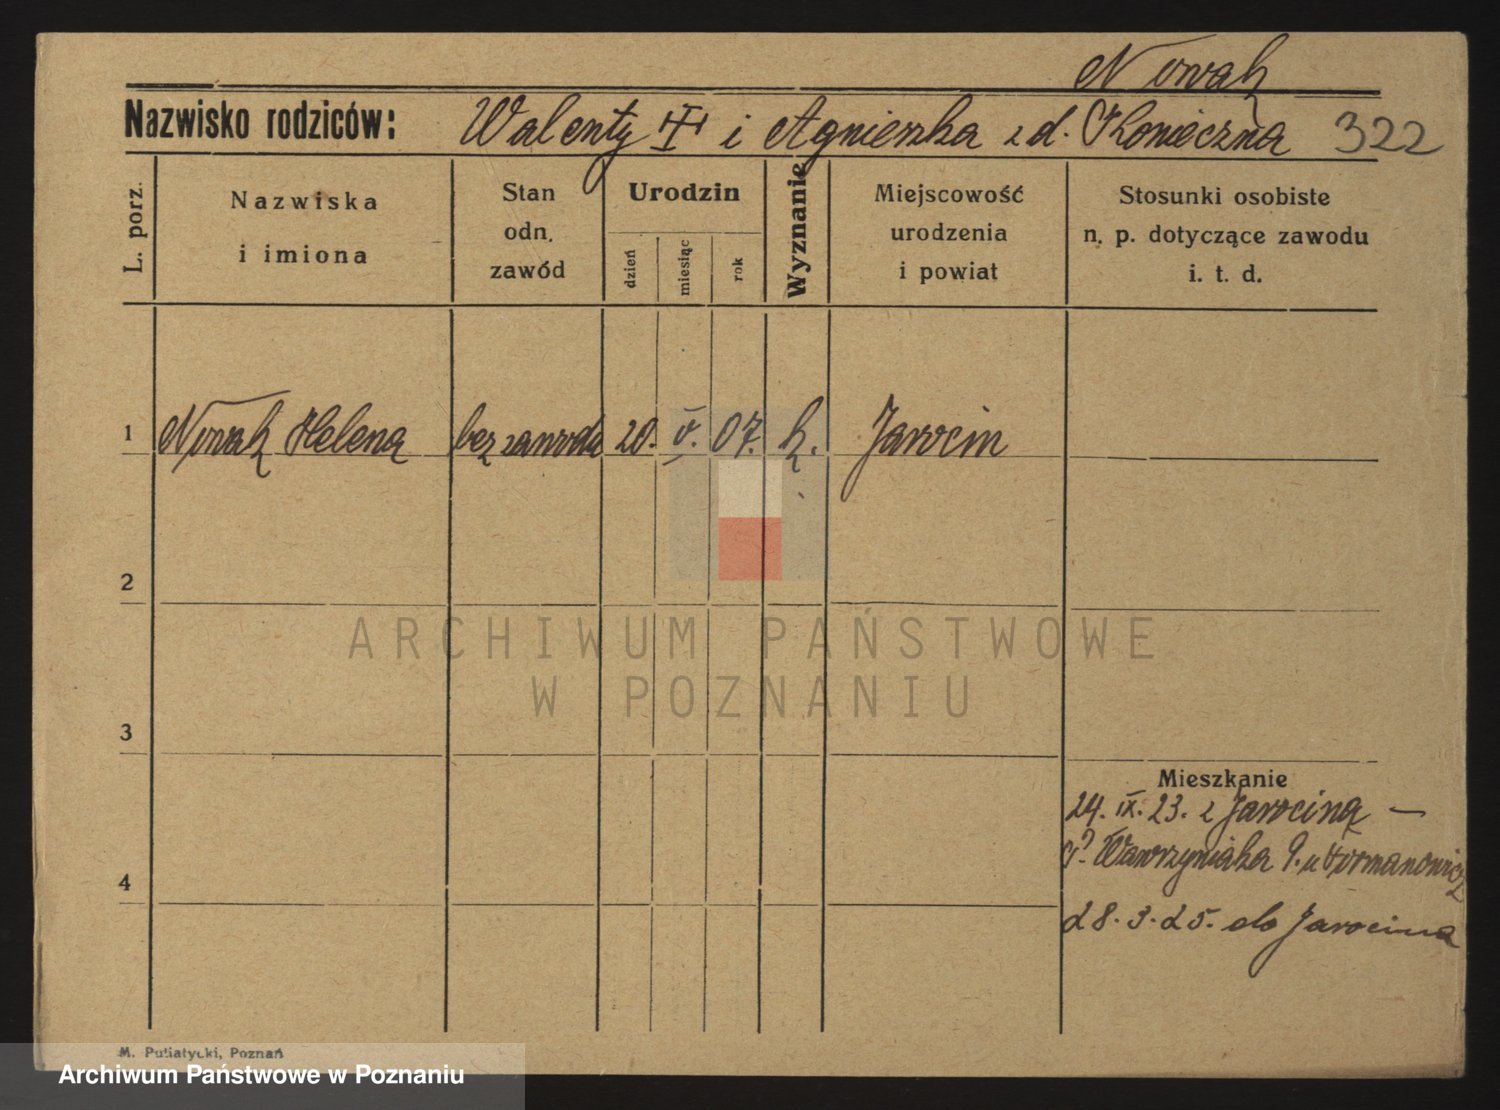 Nowak
Nazwisko rodziców: Walenty i Agnieszka z d. Konieczna 322
L. porz.
Nazwiska
i imiona
Stan
odn.
zawód
Urodzin
dzień
miesiąc
rok
Wyznanie
Miejscowość
urodzenia
i powiat
Stosunki osobiste
n. p. dotyczące zawodu
i. t. d.
1 Nowak Helena bez zawodu 20. V. 07. k. Jarocin
2
ARCHIWUM PAŃSTWOWE
W POZNANIU
3
Mieszkanie
24. IX. 23. z Jarocina —
Wawrzyniaka 9. u Furmanowicz
4
28. 3. 25. do Jarocina
M. Putiatycki, Poznań
Archiwum Państwowe w Poznaniu